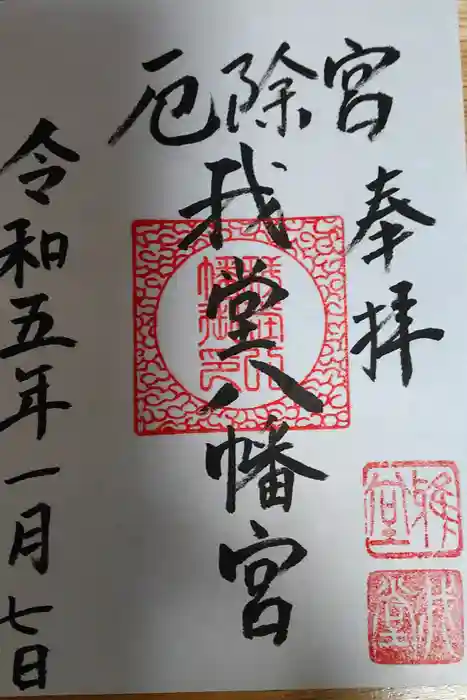 厄除宮
奉拝
我堂八幡宮
令和五年一月七日